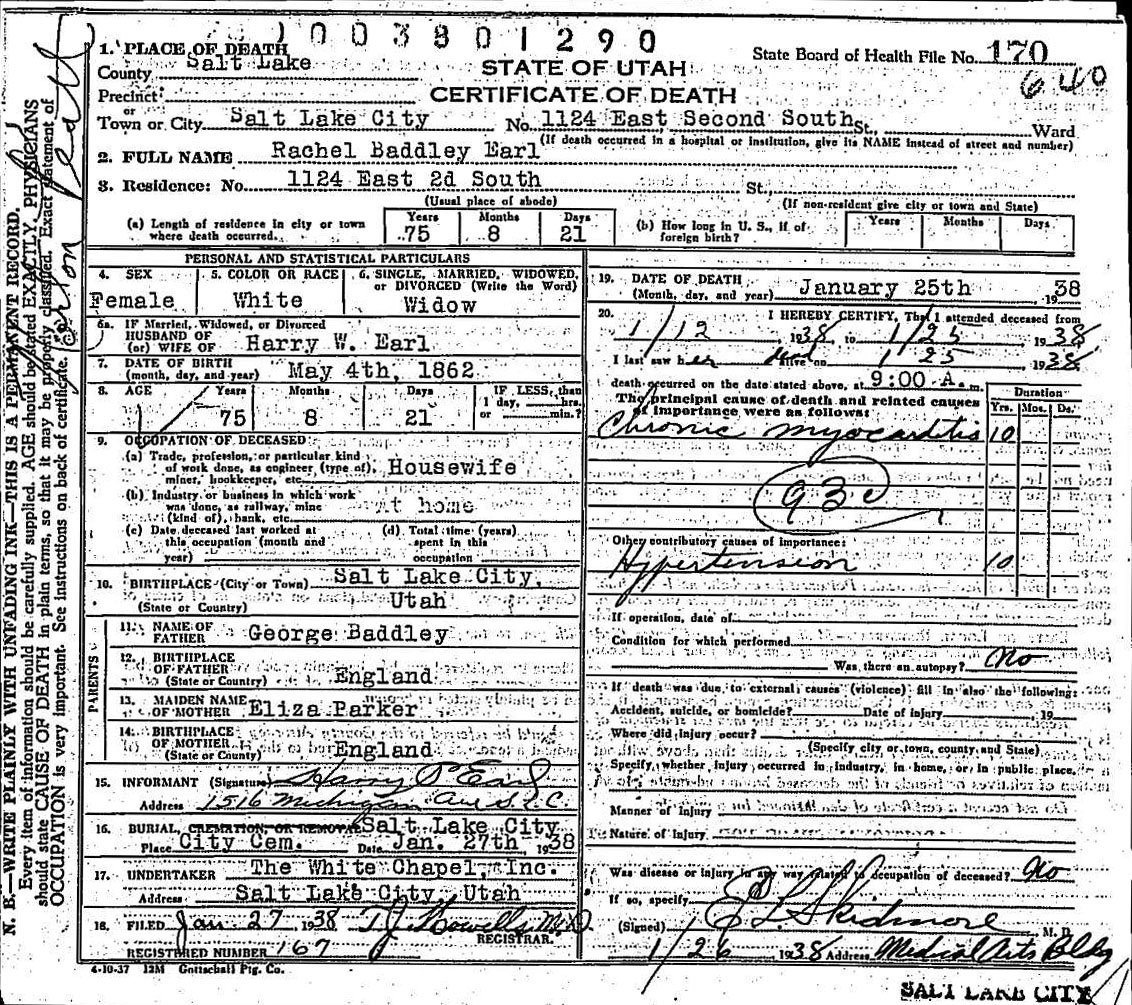 1003801290
1. PLACE OF DEATH
County Salt Lake
STATE OF UTAH
State Board of Health File No. 170
640
Precinct
CERTIFICATE OF DEATH
or
Town or City Salt Lake City No. 1124 East Second South St., Ward
(If death occurred in a hospital or institution, give its NAME instead of street and number)
2. FULL NAME Rachel Baddley Earl
3. Residence: No. 1124 East 2d South St.
(Usual place of abode) (If non-resident give city or town and State)
(a) Length of residence in city or town where death occurred. Years 75 Months 8 Days 21
(b) How long in U. S., if of foreign birth? Years Months Days
PERSONAL AND STATISTICAL PARTICULARS
4. SEX Female
5. COLOR OR RACE White
6. SINGLE, MARRIED, WIDOWED, or DIVORCED (Write the Word) Widow
6a. IF Married, Widowed, or Divorced
HUSBAND OF
(or) WIFE OF Harry W. Earl
7. DATE OF BIRTH
(month, day, and year) May 4th, 1862
8. AGE Years 75 Months 8 Days 21 IF LESS than 1 day, hrs. or min.?
9. OCCUPATION OF DECEASED
(a) Trade, profession, or particular kind of work done, as engineer (type of), miner, bookkeeper, etc. Housewife
(b) Industry or business in which work was done, as railway, mine (kind of), bank, etc. At home
(c) Date deceased last worked at this occupation (month and year)
(d) Total time (years) spent in this occupation
10. BIRTHPLACE (City or Town) Salt Lake City,
(State or Country) Utah
PARENTS
11. NAME OF FATHER George Baddley
12. BIRTHPLACE OF FATHER (State or Country) England
13. MAIDEN NAME OF MOTHER Eliza Parker
14. BIRTHPLACE OF MOTHER (State or Country) England
15. INFORMANT (Signature) Harry P Earl
Address 1516 Michigan Ave S.L.C.
16. BURIAL, CREMATION, OR REMOVAL Salt Lake City
Place City Cem. Date Jan. 27th 1938
17. UNDERTAKER The White Chapel, Inc.
Address Salt Lake City, Utah
18. FILED Jan 27 1938 T.J. Howells M.D.
REGISTRAR.
REGISTERED NUMBER 167
4-10-37 12M Gottschall Ptg. Co.
19. DATE OF DEATH
(Month, day, and year) January 25th 1938
20. I HEREBY CERTIFY, That I attended deceased from
1/12 1938, to 1/25 1938
I last saw her on 1 25 1938
death occurred on the date stated above, at 9:00 A. m.
The principal cause of death and related causes of importance were as follows:
Duration
Yrs. Mos. Ds.
Chronic myocarditis 10
Other contributory causes of importance:
Hypertension 10
If operation, date of
Condition for which performed
Was there an autopsy? No
If death was due to external causes (violence) fill in also the following:
Accident, suicide, or homicide? Date of injury 19
Where did injury occur?
(Specify city or town, county and State)
Specify, whether injury occurred in industry, in home, or in public place.
Manner of Injury
Nature of Injury
Was disease or injury in any way related to occupation of deceased? No
If so, specify
(Signed) E L Skidmore M. D.
1/26 1938 Address Medical Arts Bldg
SALT LAKE CITY
N. B.—WRITE PLAINLY WITH UNFADING INK—THIS IS A PERMANENT RECORD.
Every item of information should be carefully supplied. AGE should be stated EXACTLY. PHYSICIANS
should state CAUSE OF DEATH in plain terms, so that it may be properly classified. Exact statement of
OCCUPATION is very important. See instructions on back of certificate.